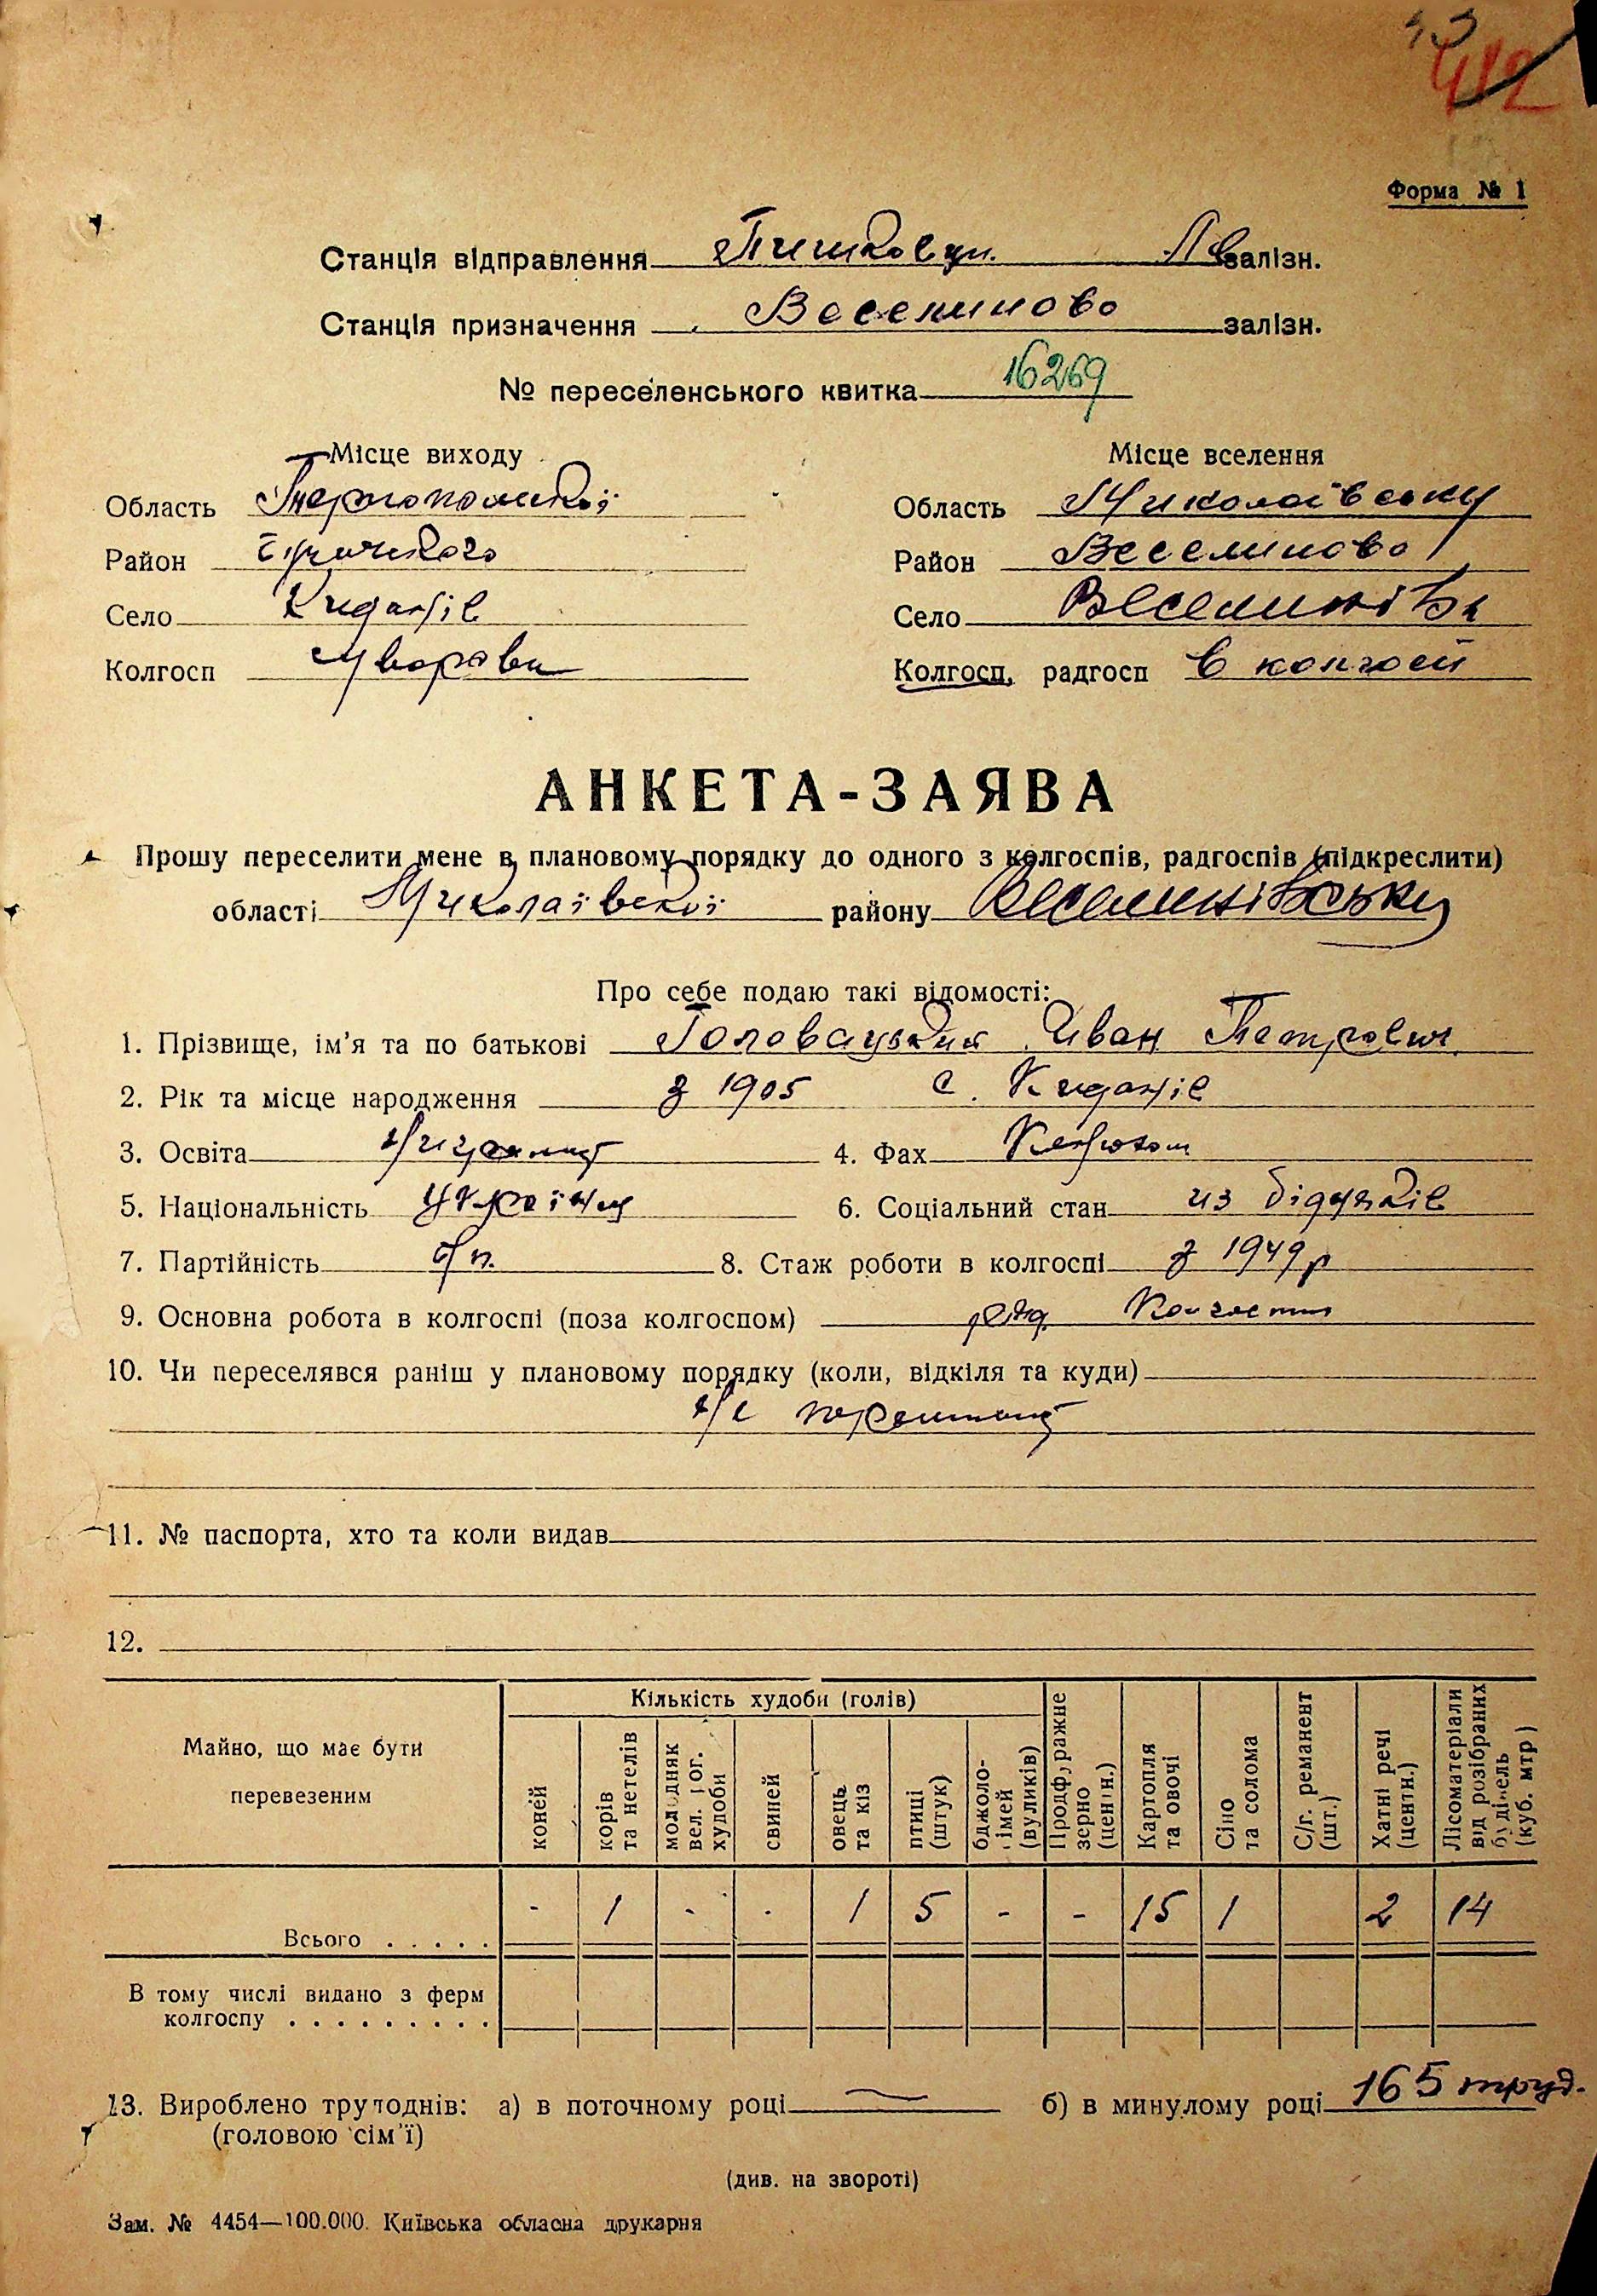 412
Форма № 1
Станція відправлення Пишковци. Льв залізн.
Станція призначення Веселиново залізн.
№ переселенського квитка 16269
Місце виходу
Область Тернопольскої
Район
Село Киданів
Колгосп Суворова
Місце вселення
Область Миколаївську
Район Веселиново
Село Веселинівка
Колгосп, радгосп в колгосп
АНКЕТА-ЗАЯВА
Прошу переселити мене в плановому порядку до одного з колгоспів, радгоспів (підкреслити)
області Миколаївської району Веселинівську
Про себе подаю такі відомості:
1. Прізвище, ім'я та по батькові Головацький Иван Петрович
2. Рік та місце народження з 1905 с. Киданів
3. Освіта 4. Фах
5. Національність Українец 6. Соціальний стан из бідняків
7. Партійність б/п. 8. Стаж роботи в колгоспі з 1949 р
9. Основна робота в колгоспі (поза колгоспом) ряд. Колгоспник
10. Чи переселявся раніш у плановому порядку (коли, відкіля та куди)
11. № паспорта, хто та коли видав
12.
Майно, що має бути перевезеним
Кількість худоби (голів)
коней
корів та нетелів
молодняк вел. рог. худоби
свиней
овець та кіз
птиці (штук)
бджоло-сімей (вуликів)
Продфуражне зерно (центн.)
Картопля та овочі
Сіно та солома
С/г. реманент (шт.)
Хатні речі (центн.)
Лісоматеріали від розібраних будівель (куб. мтр)
Всього . . . . . - 1 - - 1 5 - - 15 1 2 14
В тому числі видано з ферм
колгоспу . . . . . . . . .
13. Вироблено трудоднів: а) в поточному році — б) в минулому році 165 труд.
(головою сім'ї)
(див. на звороті)
Зам. № 4454—100.000. Київська обласна друкарня